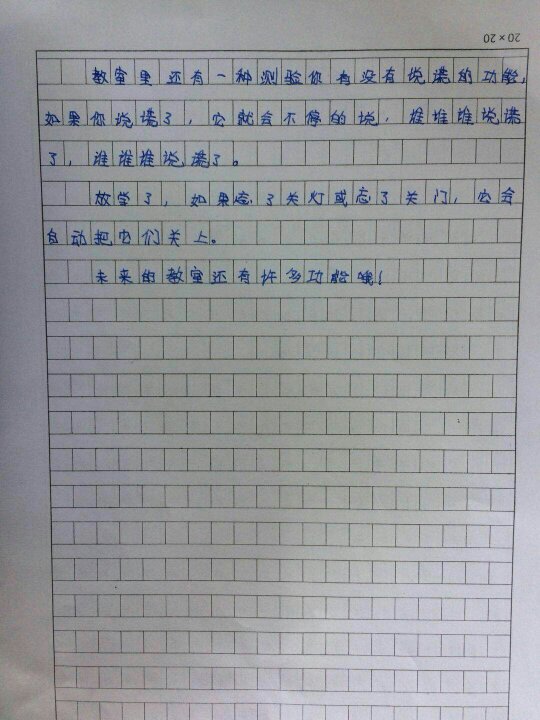 20×20
教室里还有一种测验你有没有说谎的功能,
如果你说谎了,它就会不停的说,谁谁谁说谎
了,谁谁谁说谎了。
放学了,如果忘了关灯或忘了关门,它会
自动把它们关上。
未来的教室还有许多功能哦!